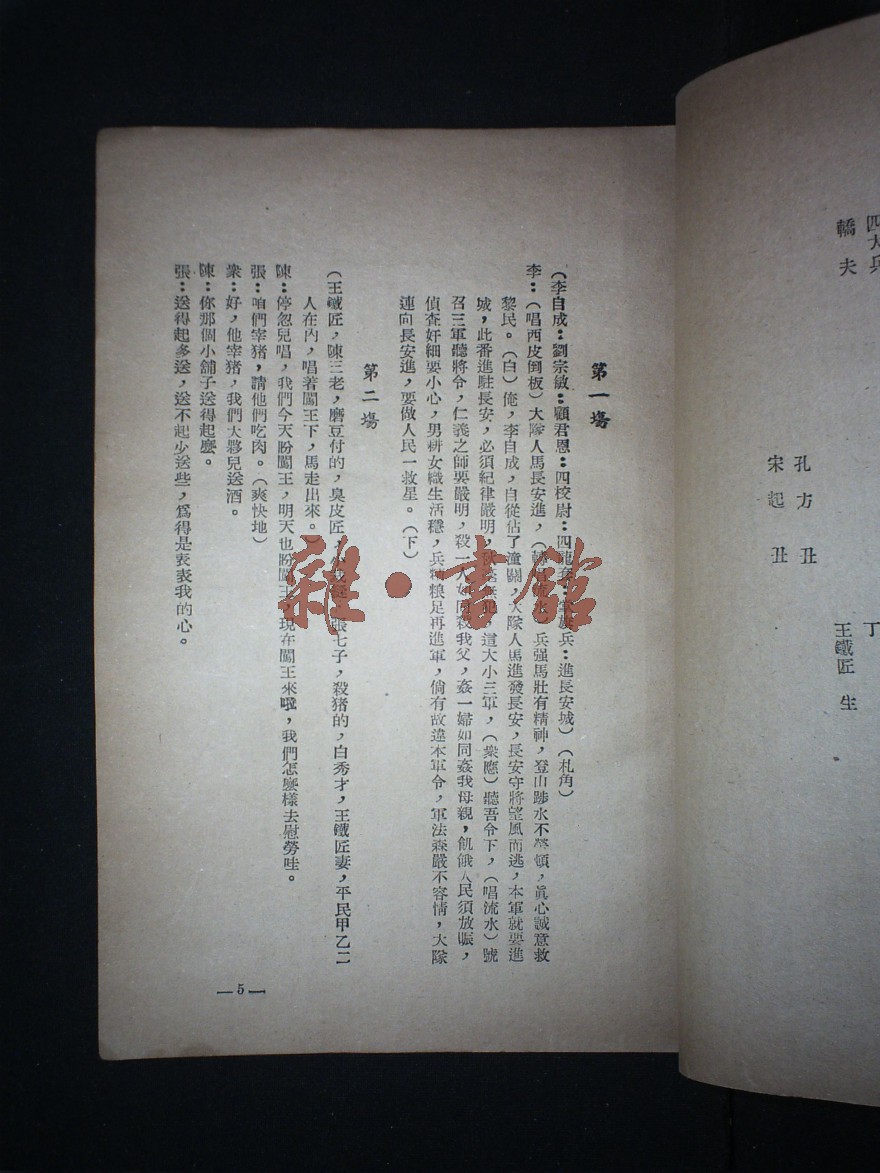 四大兵
轎夫
孔方 丑
宋起 丑
丁
王鐵匠 生
第一場
(李自成：劉宗敏：顧君恩：四校尉：四龍套：掌旗兵：進長安城)(札角)
李：(唱西皮倒板)大隊人馬長安進，(轉唱流水)兵强馬壯有精神，登山踄水不勞頓，眞心誠意救
黎民。(白)俺，李自成，自從佔了潼關，大隊人馬進發長安，長安守將望風而逃，本軍就要進
城，此番進駐長安，必須紀律嚴明，秋毫無犯，這大小三軍，(衆應)聽吾令下，(唱流水)號
召三軍聽將令，仁義之師要嚴明，殺一人如同殺我父，姦一婦如同姦我母親，飢餓人民須放賑，
偵查奸細要小心，男耕女織生活穩，兵精粮足再進軍，倘有故違本軍令，軍法森嚴不容情，大隊
連向長安進，要做人民一救星。(下)
第二場
(王鐵匠，陳三老，磨豆付的，臭皮匠，小 張七子，殺猪的，白秀才，王鐵匠妻，平民甲乙二
人在內，唱着闖王下，馬走出來。)
陳：停忽兒唱，我們今天盼闖王，明天也盼闖王，現在闖王來啦，我們怎麽樣去慰勞哇。
張：咱們宰猪，請他們吃肉。(爽快地)
衆：好，他宰猪，我們大夥兒送酒。
陳：你那個小舖子送得起麽。
張：送得起多送，送不起少送些，爲得是表表我的心。
—5—
雜·書館